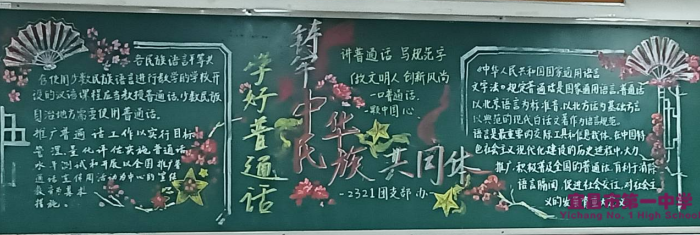 各民族语言平等
在使用少数民族语言进行教学的学校开
设的汉语课程应当教授普通话,少数民族
自治地方需要使用普通话.
推广普通话工作以实行目标
管理,量化评估实施普通话
水平测试和开展以全国推广普
通话宣传周活动为中心的宣传
教育为基本
措施.
学好普通话
铸牢
中华
民族共同体
讲普通话 写规范字
做文明人 创新风尚
一口普通话.
一颗中国心
-2321团支部办-
《中华人民共和国国家通用语言
文字法》规定普通话是国家通用语言.普通话
以北京语音为标准音,以北方话为基础方言
以典范的现代白话文著作为语法规范.
语言是最重要的交际工具和信息载体.在中国特
色社会主义现代化建设的历史进程中,大力
推广,积极普及全国的普通话,有利于消除
语言隔阂,促进社会交往,对社会主
义的
宜昌市第一中学
Yichang No. 1 High School